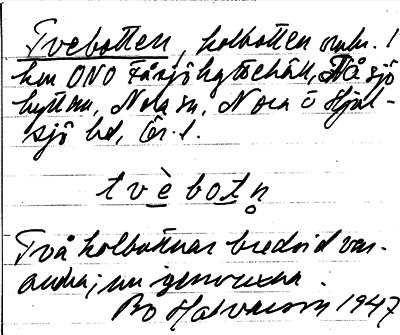 Tvebotten, kolbotten omkr. 1
km ONO Fåsjöhyttehäll, Fåsjö
hyttan, Nora sn, Nora o Hjul-
sjö bd, Ör. l.
t v è b o t n̥
Två kolbottnar bredvid var-
andra; nu igenvuxna.
Bo Halvarsson 1947